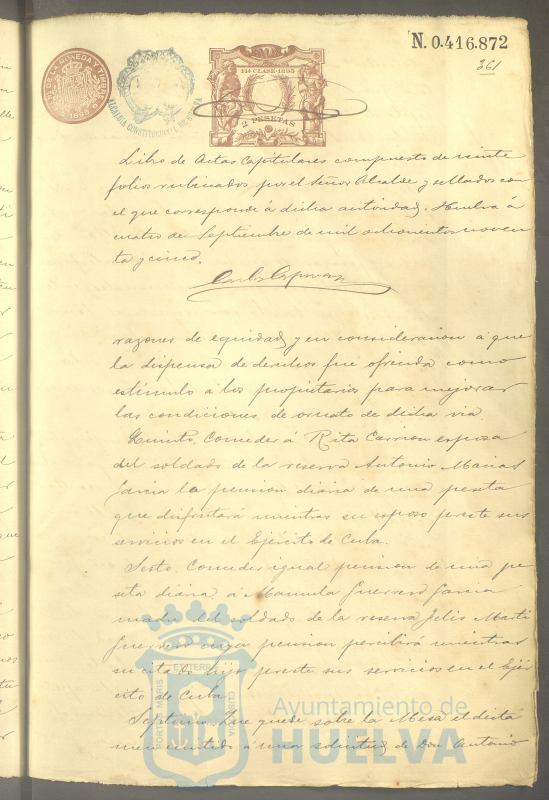 N. 0.416.872
361
11ª CLASE-1895
2 PESETAS
1895
Libro de Actas Capitulares compuesto de veinte
folios rubricados por el Señor Alcalde y sellados con
el que corresponde á dicha autoridad. Huelva á
cuatro de Septiembre de mil ochocientos noven
ta y cinco.
razones de equidad y en consideracion á que
la dispensa de derechos fué ofrecida como
estímulo á los propietarios para mejorar
las condiciones de ornato de dicha via
Quinto. Conceder á Rita Carrion esposa
del soldado de la reserva Antonio Macias
Garcia la pension diaria de una peseta
que disfrutará mientras su esposo preste sus
servicios en el Ejército de Cuba.
Sesto. Conceder igual pension de una pe
seta diaria á Manuela Guerrero Garcia
madre del soldado de la reserva Felis Marti
Guerrero cuya pension percibirá mientras
su citado hijo preste sus servicios en el Ejér
cito de Cuba
Septimo. Que quede sobre la Mesa el dictá
men emitido á una solicitud de Don Antonio
PORTUS MARIS
ET TERRE
CUSTODIA
Ayuntamiento de
HUELVA